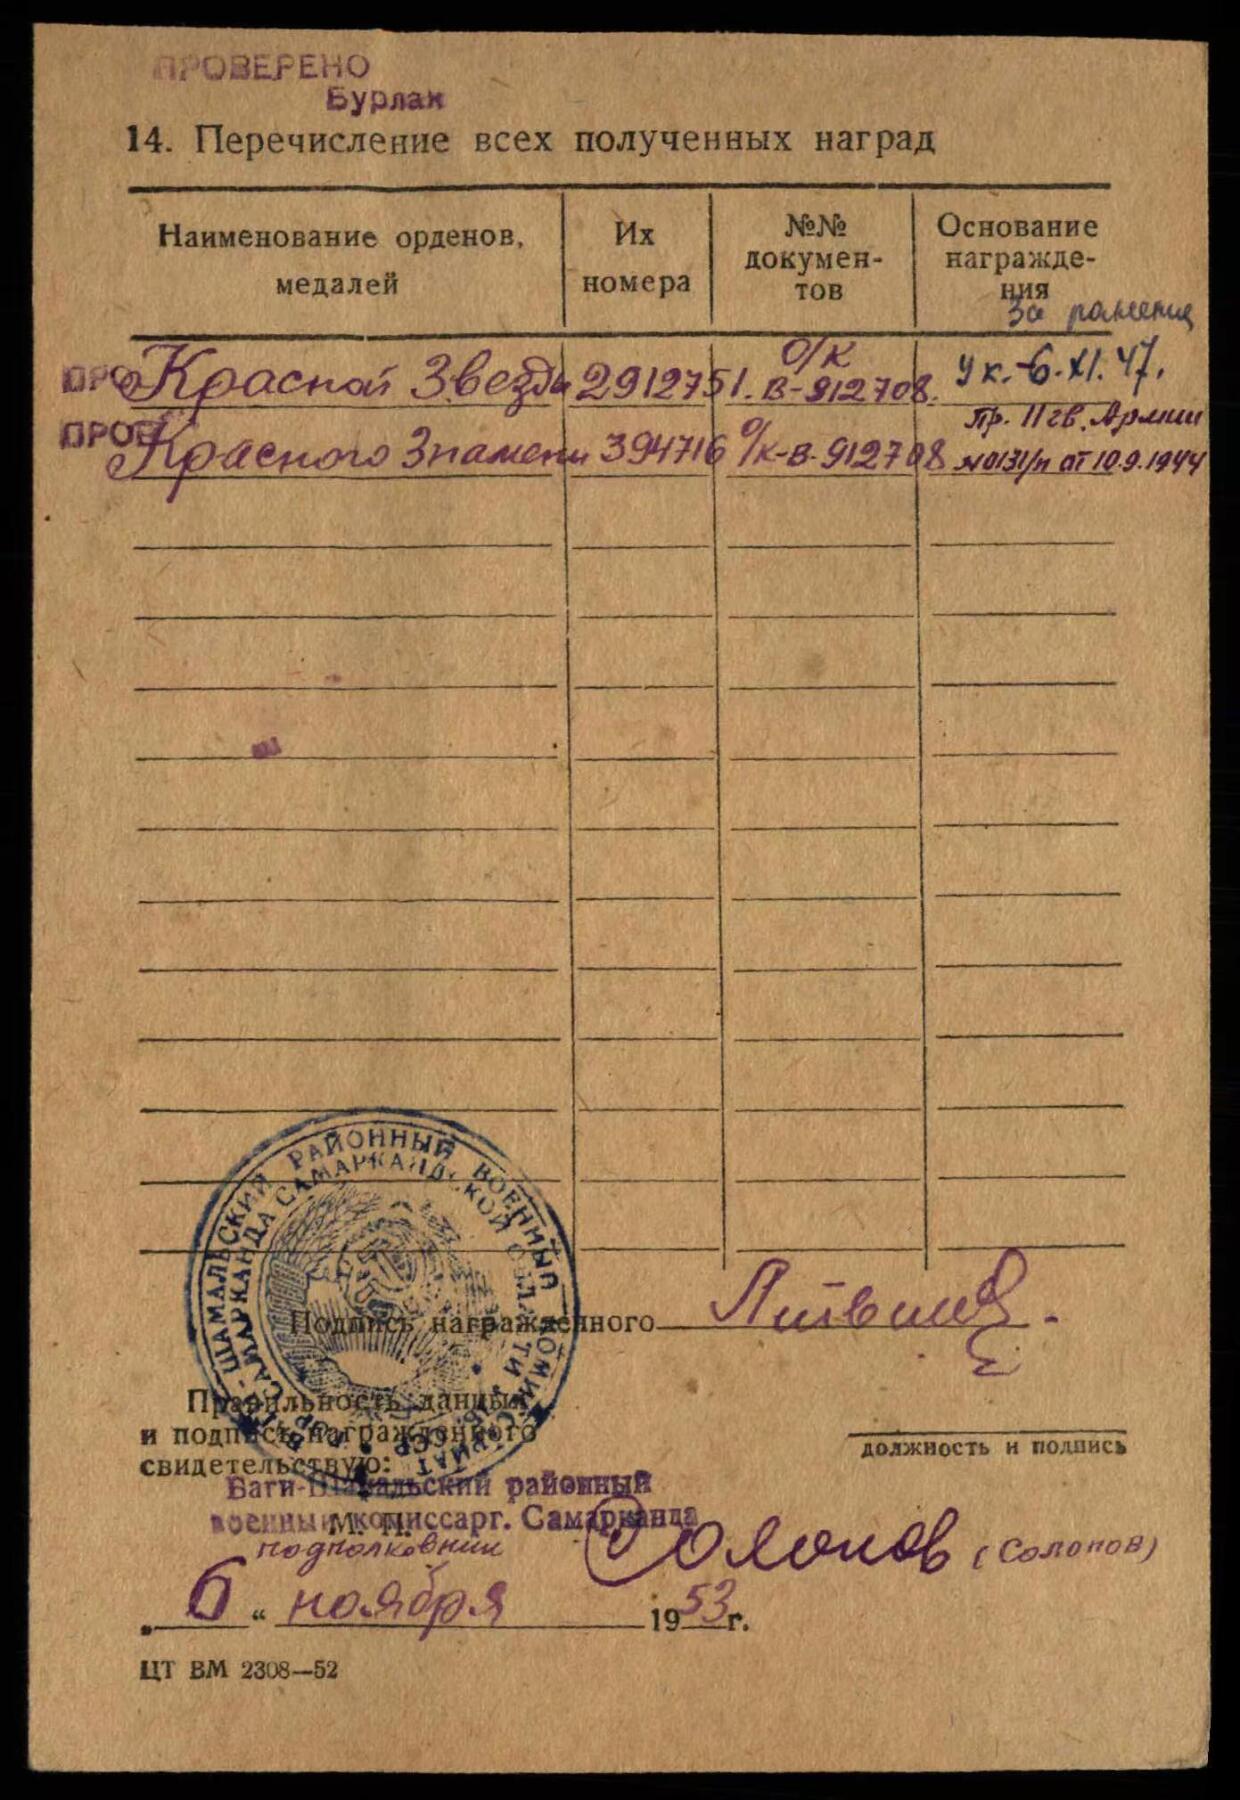 ПРОВЕРЕНО
Бурлак
14. Перечисление всех полученных наград
Наименование орденов, медалей
Их номера
№№ докумен-тов
Основание награжде-ния
За ранение
ПРО Красной Звезды 2912751. о/к В-912708. Ук. 6.XI.47.
ПРОВ Красного Знамени 394716 о/к-В-912708 Пр. 11 гв. Армии
№ 0131/н от 10.9.1944
БАГИ-ШАМАЛЬСКИЙ РАЙОННЫЙ ВОЕННЫЙ КОМИССАРИАТ
САМАРКАНДА САМАРКАНДСКОЙ ОБЛАСТИ
Подпись награжденного
Правильность данных
и подпись награжденного
свидетельствую:
должность и подпись
Баги-Шамальский районный
военный комиссар г. Самарканда
М. П.
подполковник
Солопов (Солопов)
„6“ ноября 1953 г.
ЦТ ВМ 2308—52